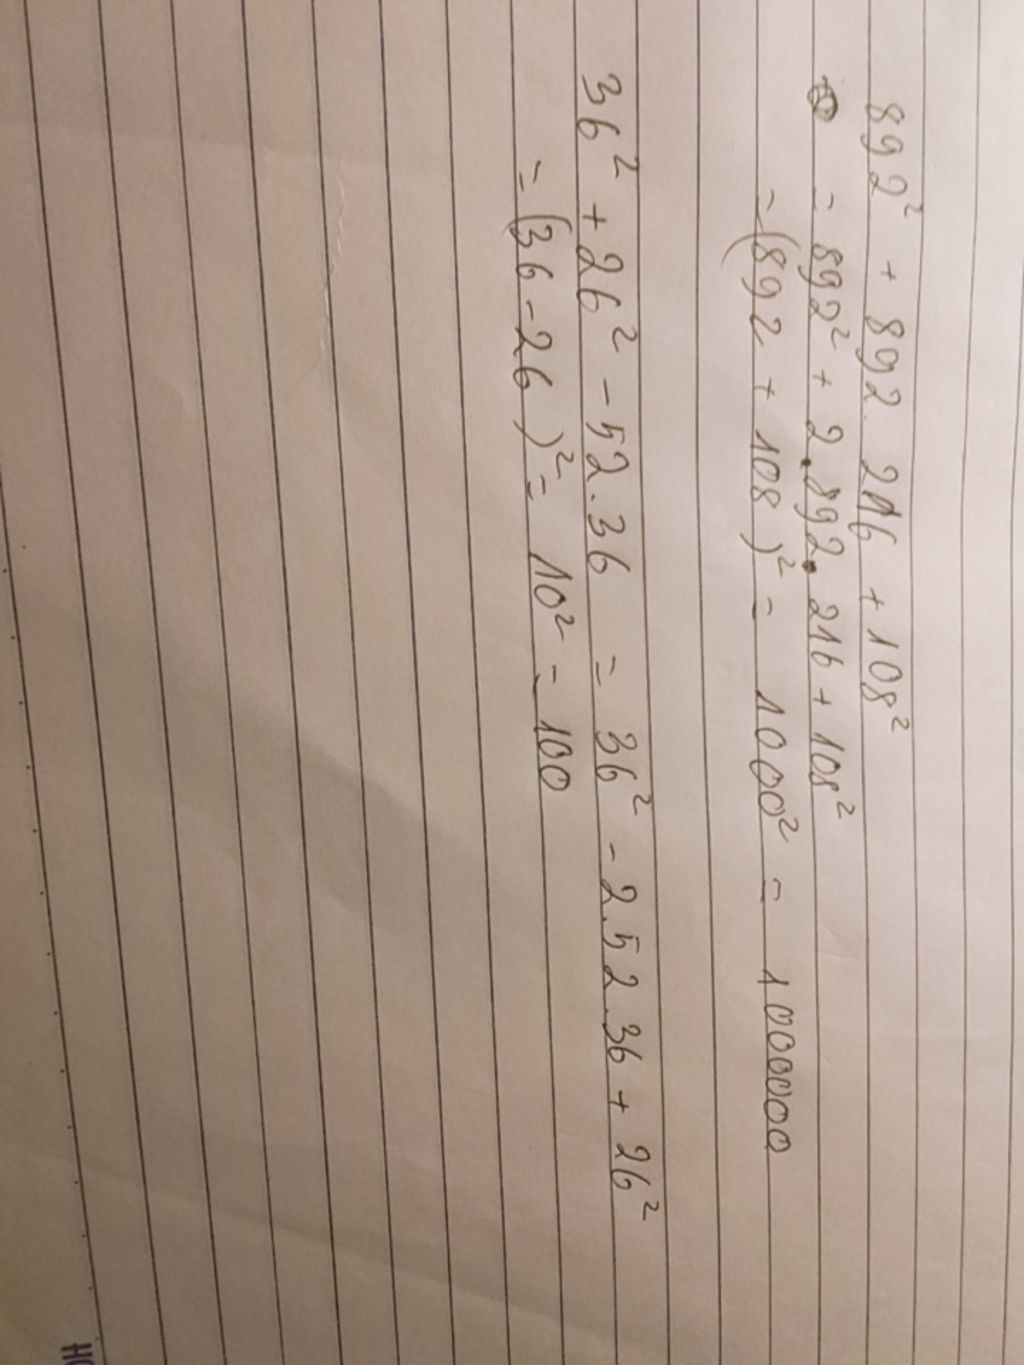 892² + 892. 216 + 108²
= 892² + 2.892. 216 + 108²
= (892 + 108)² = 1000² = 1000000
36² + 26² - 52.36 = 36² - 2.52.36 + 26²
= (36 - 26)² = 10² = 100